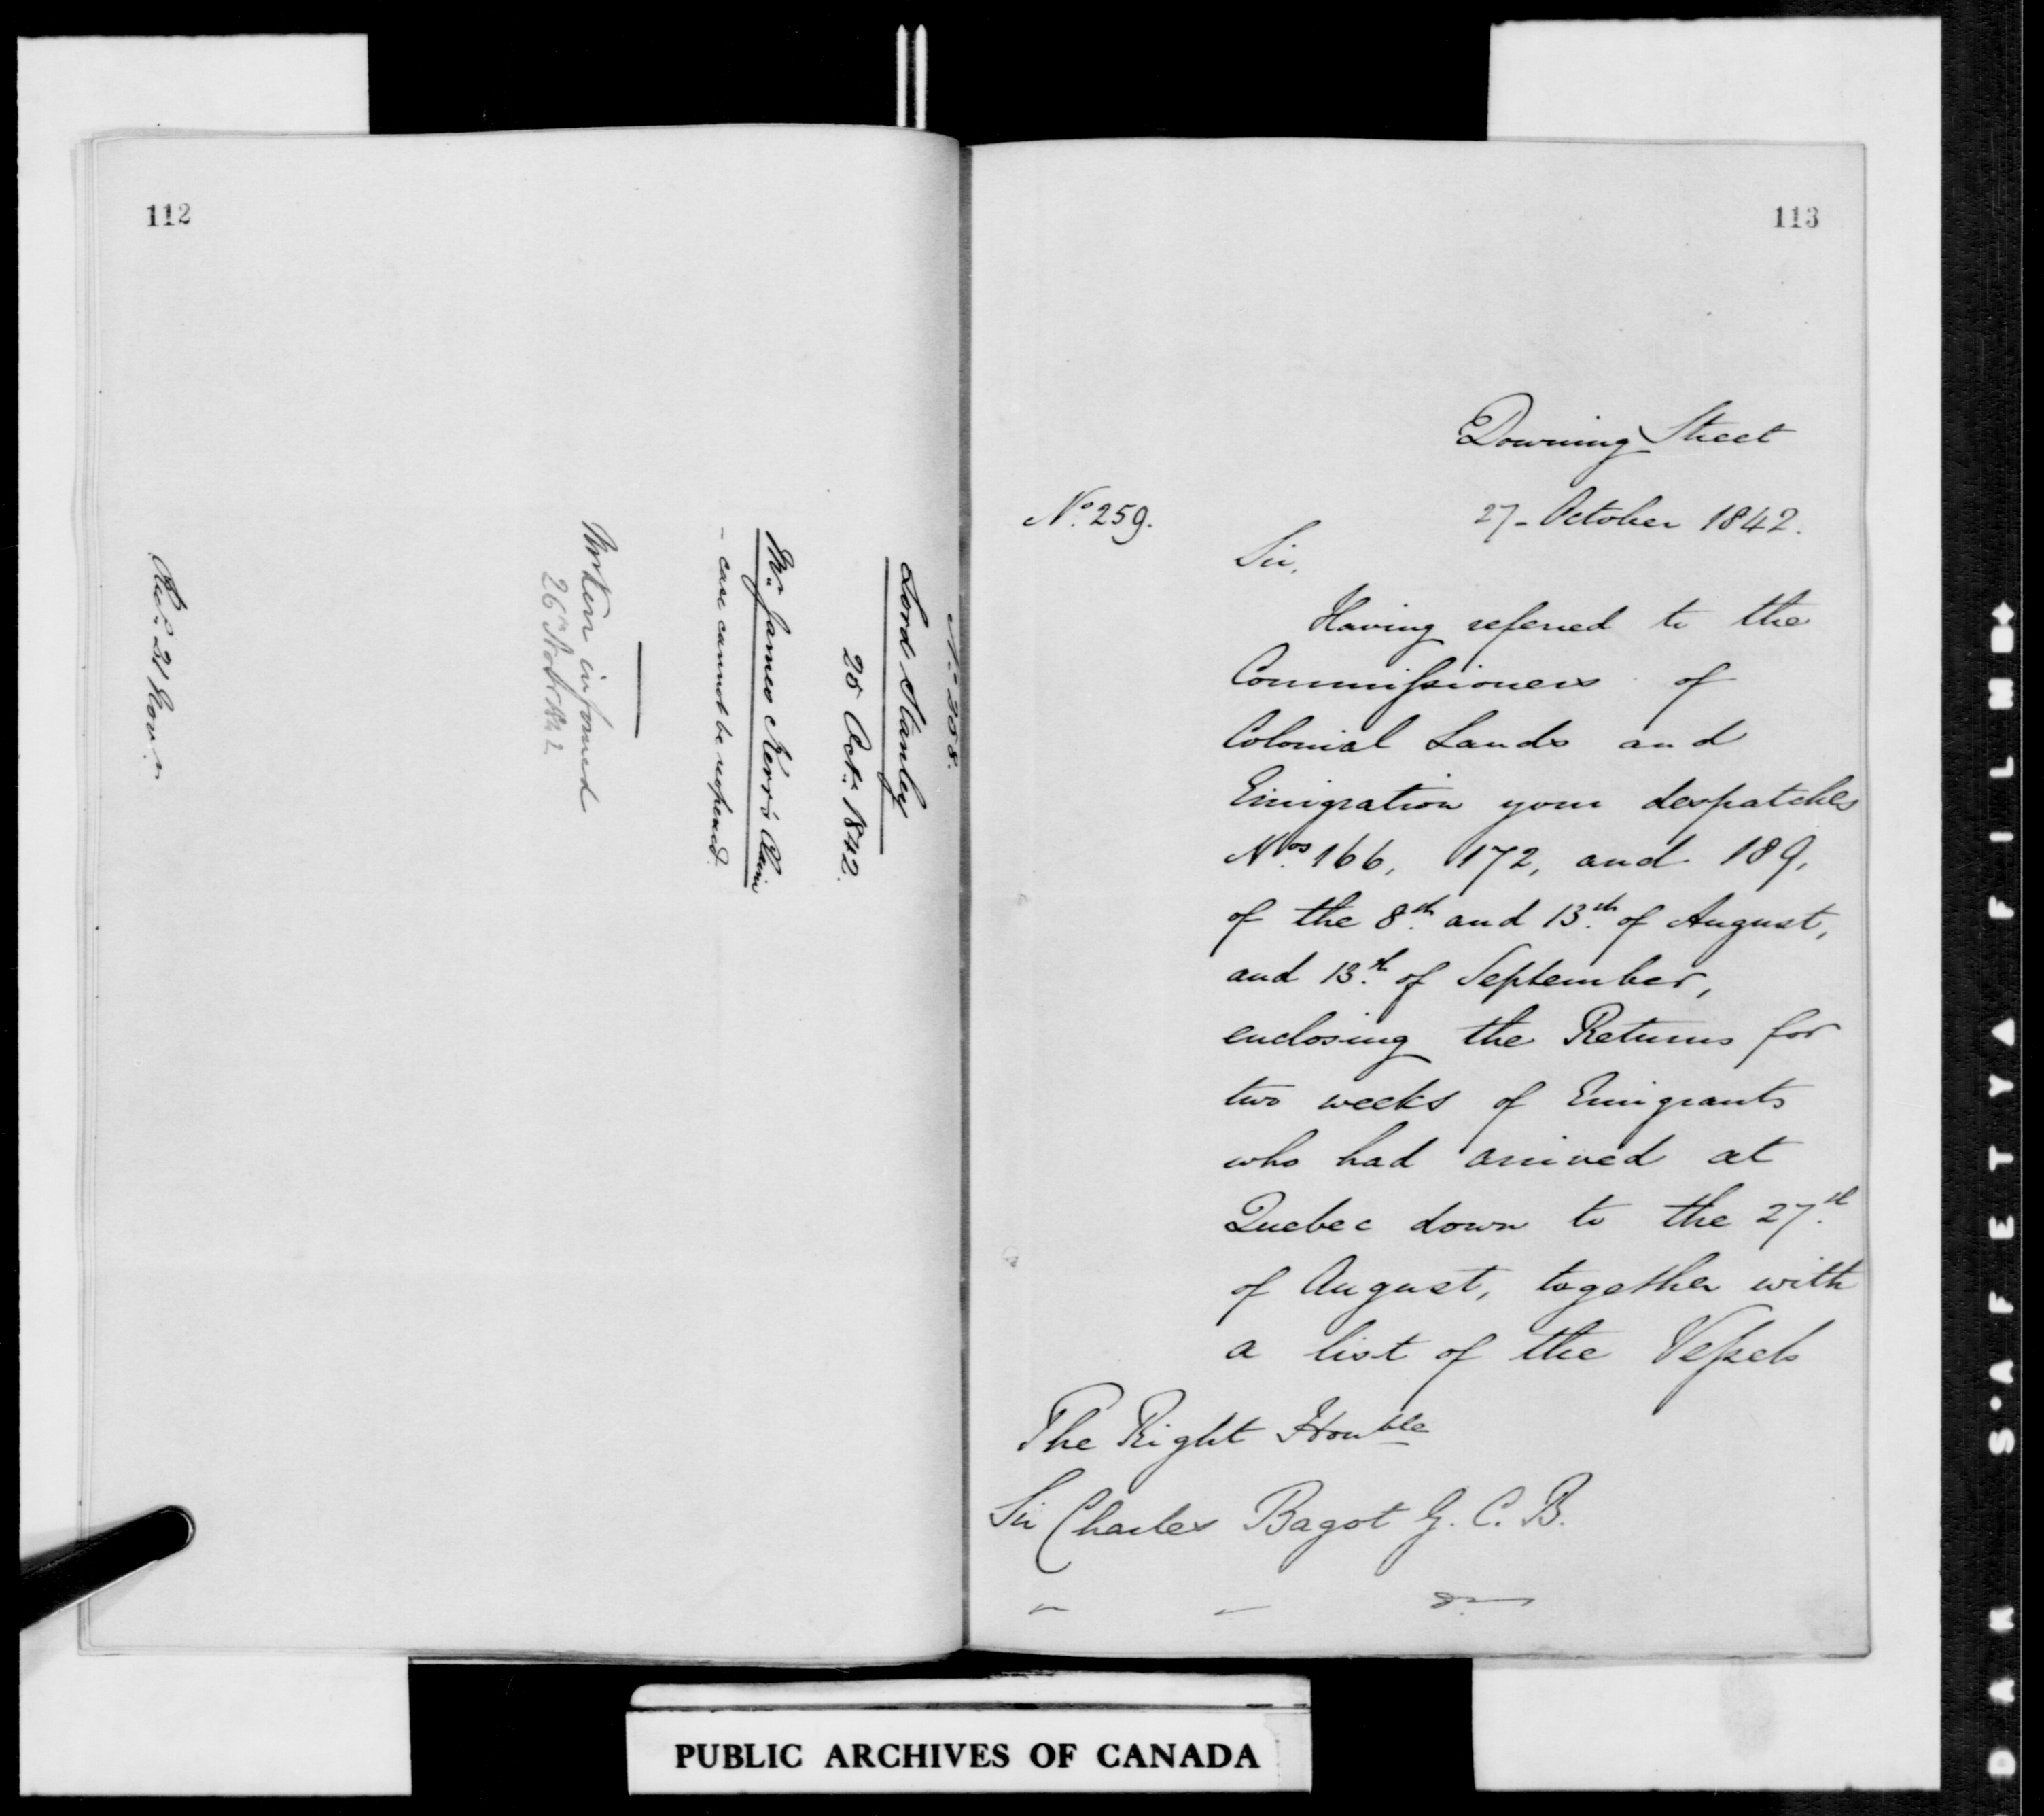 112
No 258.
Lord Stanley
28 Octr. 1842.
Mr. James Kerr's Claim
- case cannot be reopened.
Mr Kerr informed
26th Novbr 1842
Recd. 21 Novr.
113
Downing Street
No. 259.
27 - October 1842.
Sir,
Having referred to the
Commissioners of
Colonial Lands and
Emigration your despatches
Nos. 166, 172, and 189,
of the 8th. and 13th. of August,
and 13th. of September,
enclosing the Returns for
two weeks of Emigrants
who had arrived at
Quebec down to the 27th.
of August, together with
a list of the Vessels
The Right Honble
Sir Charles Bagot G. C. B.
PUBLIC ARCHIVES OF CANADA
DAK S'AFETY A FILM